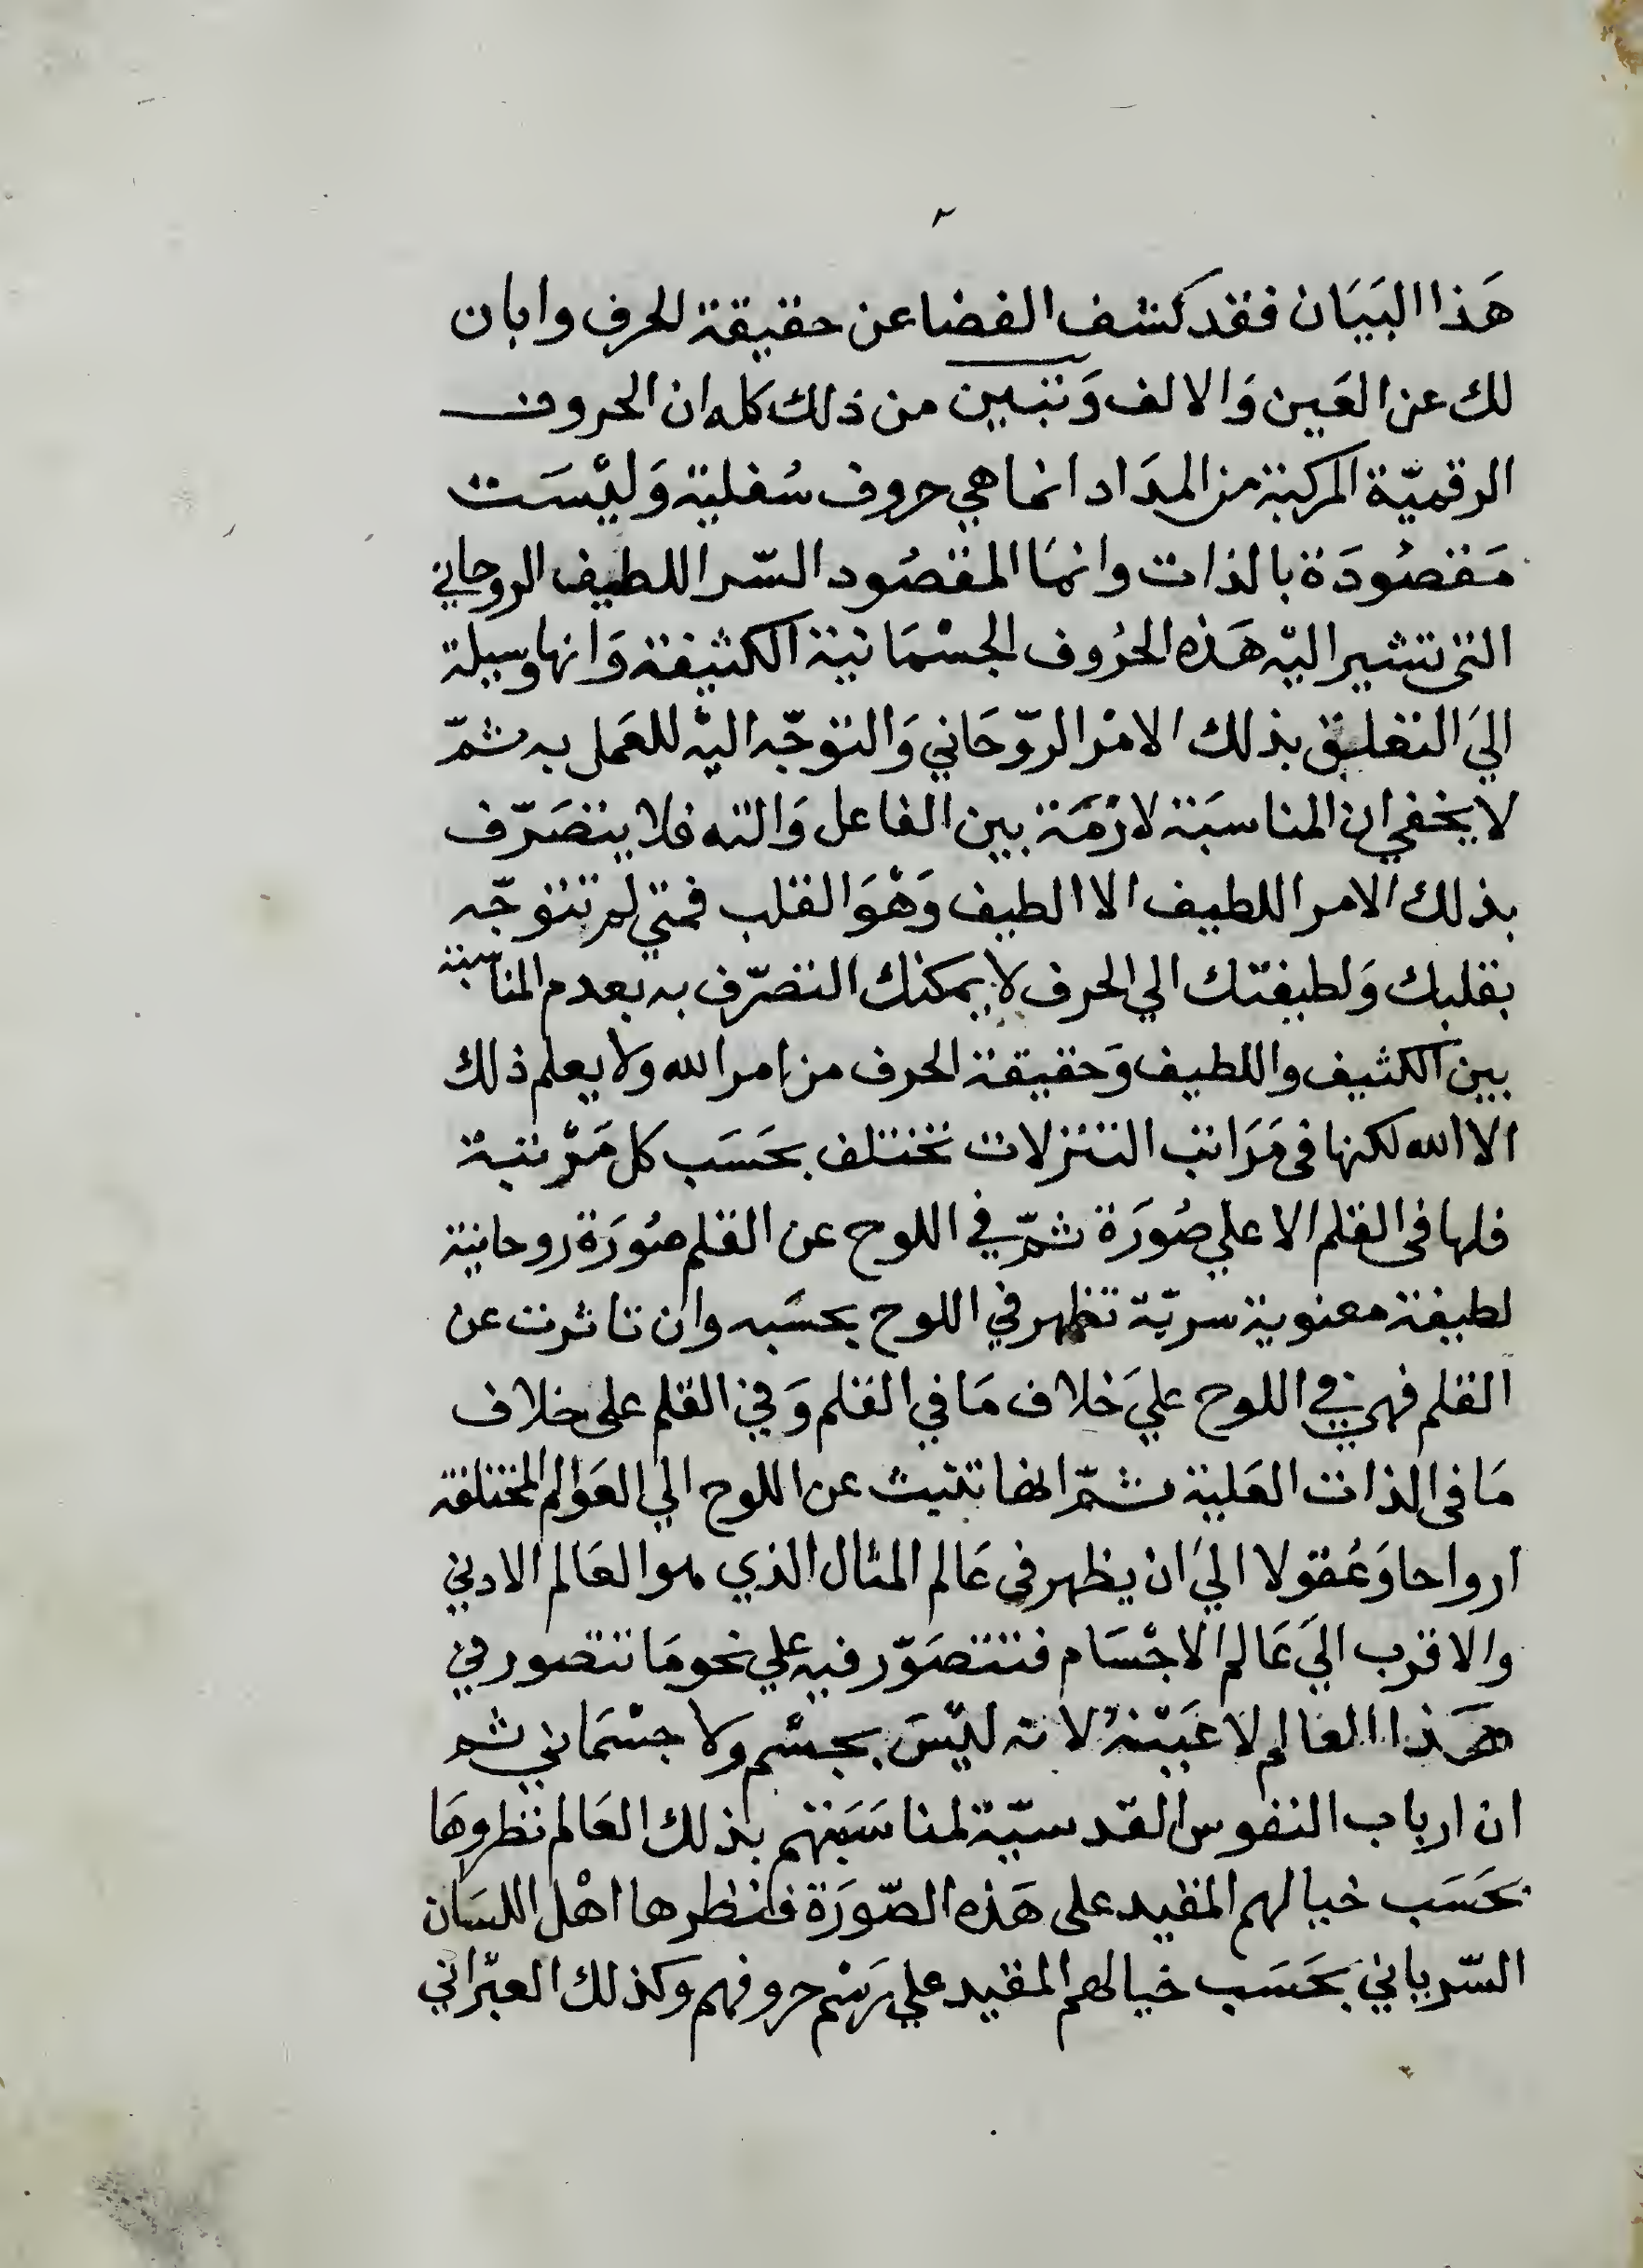 ٢
هَذا البَيَان فقد كشف الفضا عن حقيقة الحرف وابان
لك عن العَين وَالالف وَتبين من ذلك كله ان الحروف
الرقميّة المركبة من المدَاد انما هي حروف سُفلية وَليْسَت
مَقصُودَة بالذات وانمَا المقصُود السّر اللطيف الروحاني
التى تشير اليْه هَذه الحُروف الجسْمَانية الكثيفة وَانها وسيلة
اليَ التعليق بذلك الامْر الرّوحَاني وَالتوجّه اليْه للعَمل به ثمّ
لا يخفي ان المناسَبَة لازمَة بين الفاعل وَالته فلا يتصَرّف
بذلك الامر اللطيف الا الطيف وَهْوَ القلب فمتي لم تتوجّه
بقلبك وَلطيفتك الي الحرف لا يمكنك التصرّف به بعدم المناسبة
بين الكثيف واللطيف وَحقيقة الحرف من امر الله ولا يعلم ذلك
الا الله لكنها فى مَرَاتب التنزلات تختلف بحَسَب كل مَرْتبة
فلها فى القلم الاعلي صُورَة ثمّ في اللوح عن القلم صُورَة روحانية
لطيفة معنوية سريّة تظهر في اللوح بحسَبه وان تاثرت عن
القلم فهي في اللوح عليَ خلاف مَا في القلم وَفي القلم على خلاف
مَا فى الذات العَلية ثمّ انها تثبت عن اللوح الي العَوالم المختلفة
ارواحا وَعُقولا اليَ ان يظهر فى عَالم المثال الذي هو العَالم الادني
والاقرب اليَ عَالم الاجْسَام فتتصَوّر فيه علي نحو مَا تتصور في
هَذا العالم لا عَينهُ لانه ليْسَ بجسْم ولا جسْمَاني ثم
ان ارباب النفوس القدسيّة لمناسَبَتهم بذلك العَالم نظروهَا
بحَسَب خيالهم المقيد على هَذه الصّورَة فنظرها اهْل اللسَان
السّرياني بحَسَب خيالهم المقيد علي رَسْم حروفهم وكذلك العبْراني